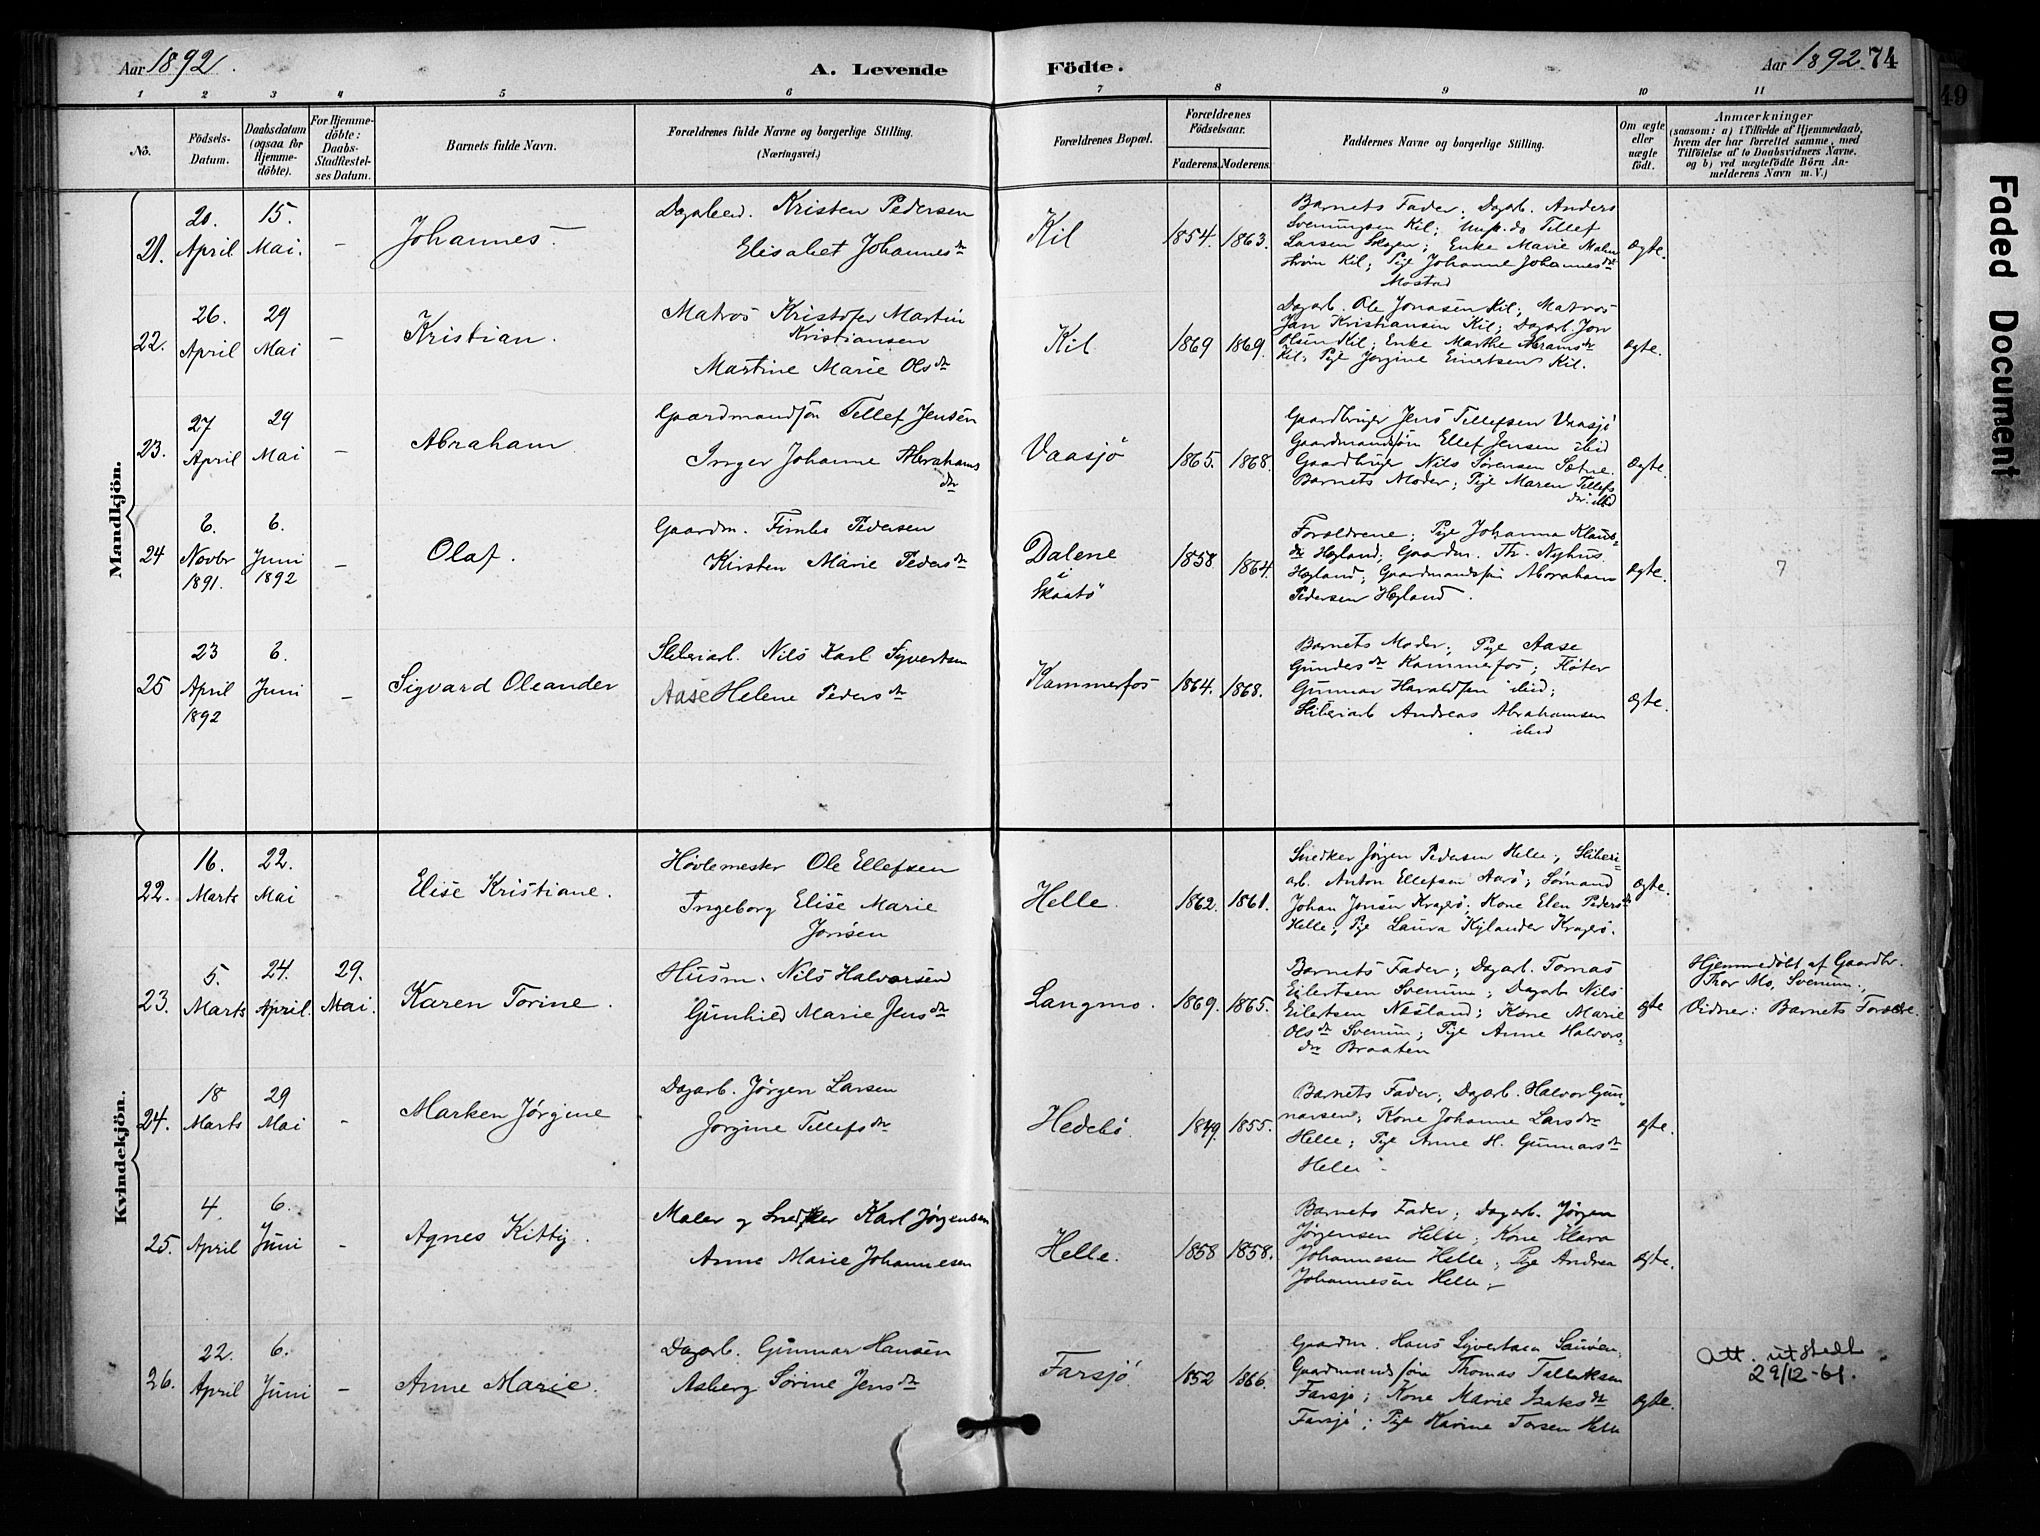 Aar 1892.
A. Levende Födte.
Aar 1892. 74
49
Faded Document
1 2 3 4 5 6 7 8 9 10 11
No.
Födsels-
Datum.
Daabsdatum
(ogsaa for
Hjemme-
döbte).
For Hjemme-
döbte:
Daabs-
Stadfæstel-
ses Datum.
Barnets fulde Navn.
Forældrenes fulde Navne og borgerlige Stilling.
(Næringsvei.)
Forældrenes Bopæl.
Forældrenes
Födselsaar.
Faderens. Moderens.
Faddernes Navne og borgerlige Stilling.
Om ægte
eller
uægte
födt.
Anmærkninger
(saasom: a) i Tilfælde af Hjemmedaab,
hvem der har forrettet samme, med
Tilföielse af to Daabsvidners Navne.
og b) ved uægtefödte Börn An-
melderens Navn m. V.)
Mandkjön.
21.
20.
April
15.
Mai.
-
Johannes.
Dagarbeid. Kristen Pedersen
Elisabet Johannesdtr
Kil
1854. 1863.
Barnets Fader; Dagarb. Anders
Svenungsen Kil; Tellef
Larsen; Enke Marie Malm-
strøm Kil; Pige Johanne Johannesdtr
Mostad
ægte.
22.
26.
April
29
Mai
-
Kristian.
Matros Kristofer Martin
Kristiansen
Martine Marie Olsdtr
Kil
1869 1869.
Dagarb. Ole Jonasen Kil; Matros
Jan Kristiansen Kil; Dagarb. Jon
Olsen Kil; Enke Marthe Abramsdtr
Kil; Pige Jørgine Einertsen Kil.
ægte.
23.
27
April
29
Mai
-
Abraham
Gaardmandsøn Tellef Jensen
Inger Johanne Abrahams
dtr
Vaasjö
1865. 1868.
Gaardbruger Jens Tellefsen Vaasjö
Gaardmandsøn Ellef Jensen ibid
Gaardbruger Nils Sørensen Sætne.
Barnets Moder; Pige Maren Tellefs
dtr. ibid
ægte.
24
6.
Novbr
1891.
6.
Juni
1892
-
Olaf.
Gaardm. Pedersen
Kirsten Marie Pedersdtr
Dalene
i
Skaatö
1858 1864.
Forældrene; Pige Johanna Klaus-
dtr Høgland; Gaardm. Th. Nyhus
Høgland; Gaardmandsøn Abraham
Pedersen Høgland.
ægte.
7
25
23
April
1892
6.
Juni
-
Sigvard Oleander
Sliberiarb. Nils Karl Syvertsen
Aase Helene Pedersdtr
Kammerfos
1864. 1868.
Barnets Moder; Pige Aase
Gundesdtr Kammerfos; Fløter
Gunnar Haraldsen ibid;
Sliberiarb Andreas Abrahamsen
ibid
ægte.
Kvindekjön.
22.
16.
Marts
22.
Mai
-
Elise Kristiane.
Høvlemester Ole Ellefsen
Ingeborg Elise Marie
Jonsen
Helle.
1862. 1861.
Snedker Jørgen Pedersen Helle; Sliberi-
arb. Anton Ellefsen Aarø; Sømand
Johan Jonsen Kragerø; Kone Elen Pedersdtr
Helle; Pige Laura Kylander Kragerø.
ægte.
23.
5.
Marts
24.
April.
29.
Mai.
Karen Torine.
Husm. Nils Halvorsen
Gunhild Marie Jensdtr
Langmo.
1869. 1865.
Barnets Fader; Dagarb. Tomas
Eilertsen Svenum; Dagarb Nils
Eilertsen Næsland; Kone Marie
Olsdtr Svenum; Pige Anne Halvors-
dtr Braaten
ægte
Hjemmedøbt af Gaardbr.
Thor Mo, Svenum.
Vidner: Barnets Forældre.
24.
18
Marts
29
Mai
-
Marken Jørgine
Dagarb. Jørgen Larsen
Jørgine Tellefsdtr
Hedebö.
1849. 1855.
Barnets Fader; Dagarb. Halvor Gun-
narsen; Kone Johanne Larsdtr
Helle; Pige Anne H. Gunnarsdtr
Helle.
ægte.
25.
4.
April
6.
Juni
-
Agnes Kitty.
Maler og Snedker Karl Jørgensen
Anne Marie Johannesen
Helle.
1858 1858.
Barnets Fader; Dagarb. Jørgen
Jørgensen Helle; Kone Klara
Johannesen Helle; Pige Andrea
Johannesen Helle.
ægte.
26.
22.
April
6.
Juni
-
Anne Marie.
Dagarb. Gunnar Hansen
Asberg Sørine Jensdtr
Farsjö.
1852 1866.
Gaardm. Hans Syvertsen Sauøen;
Gaardmandsøn Thomas Tallaksen
Farsjø; Kone Marie Isaksdtr
Farsjö; Pige Karine Torsen Helle
ægte.
Att. utstedt
29/12-61.